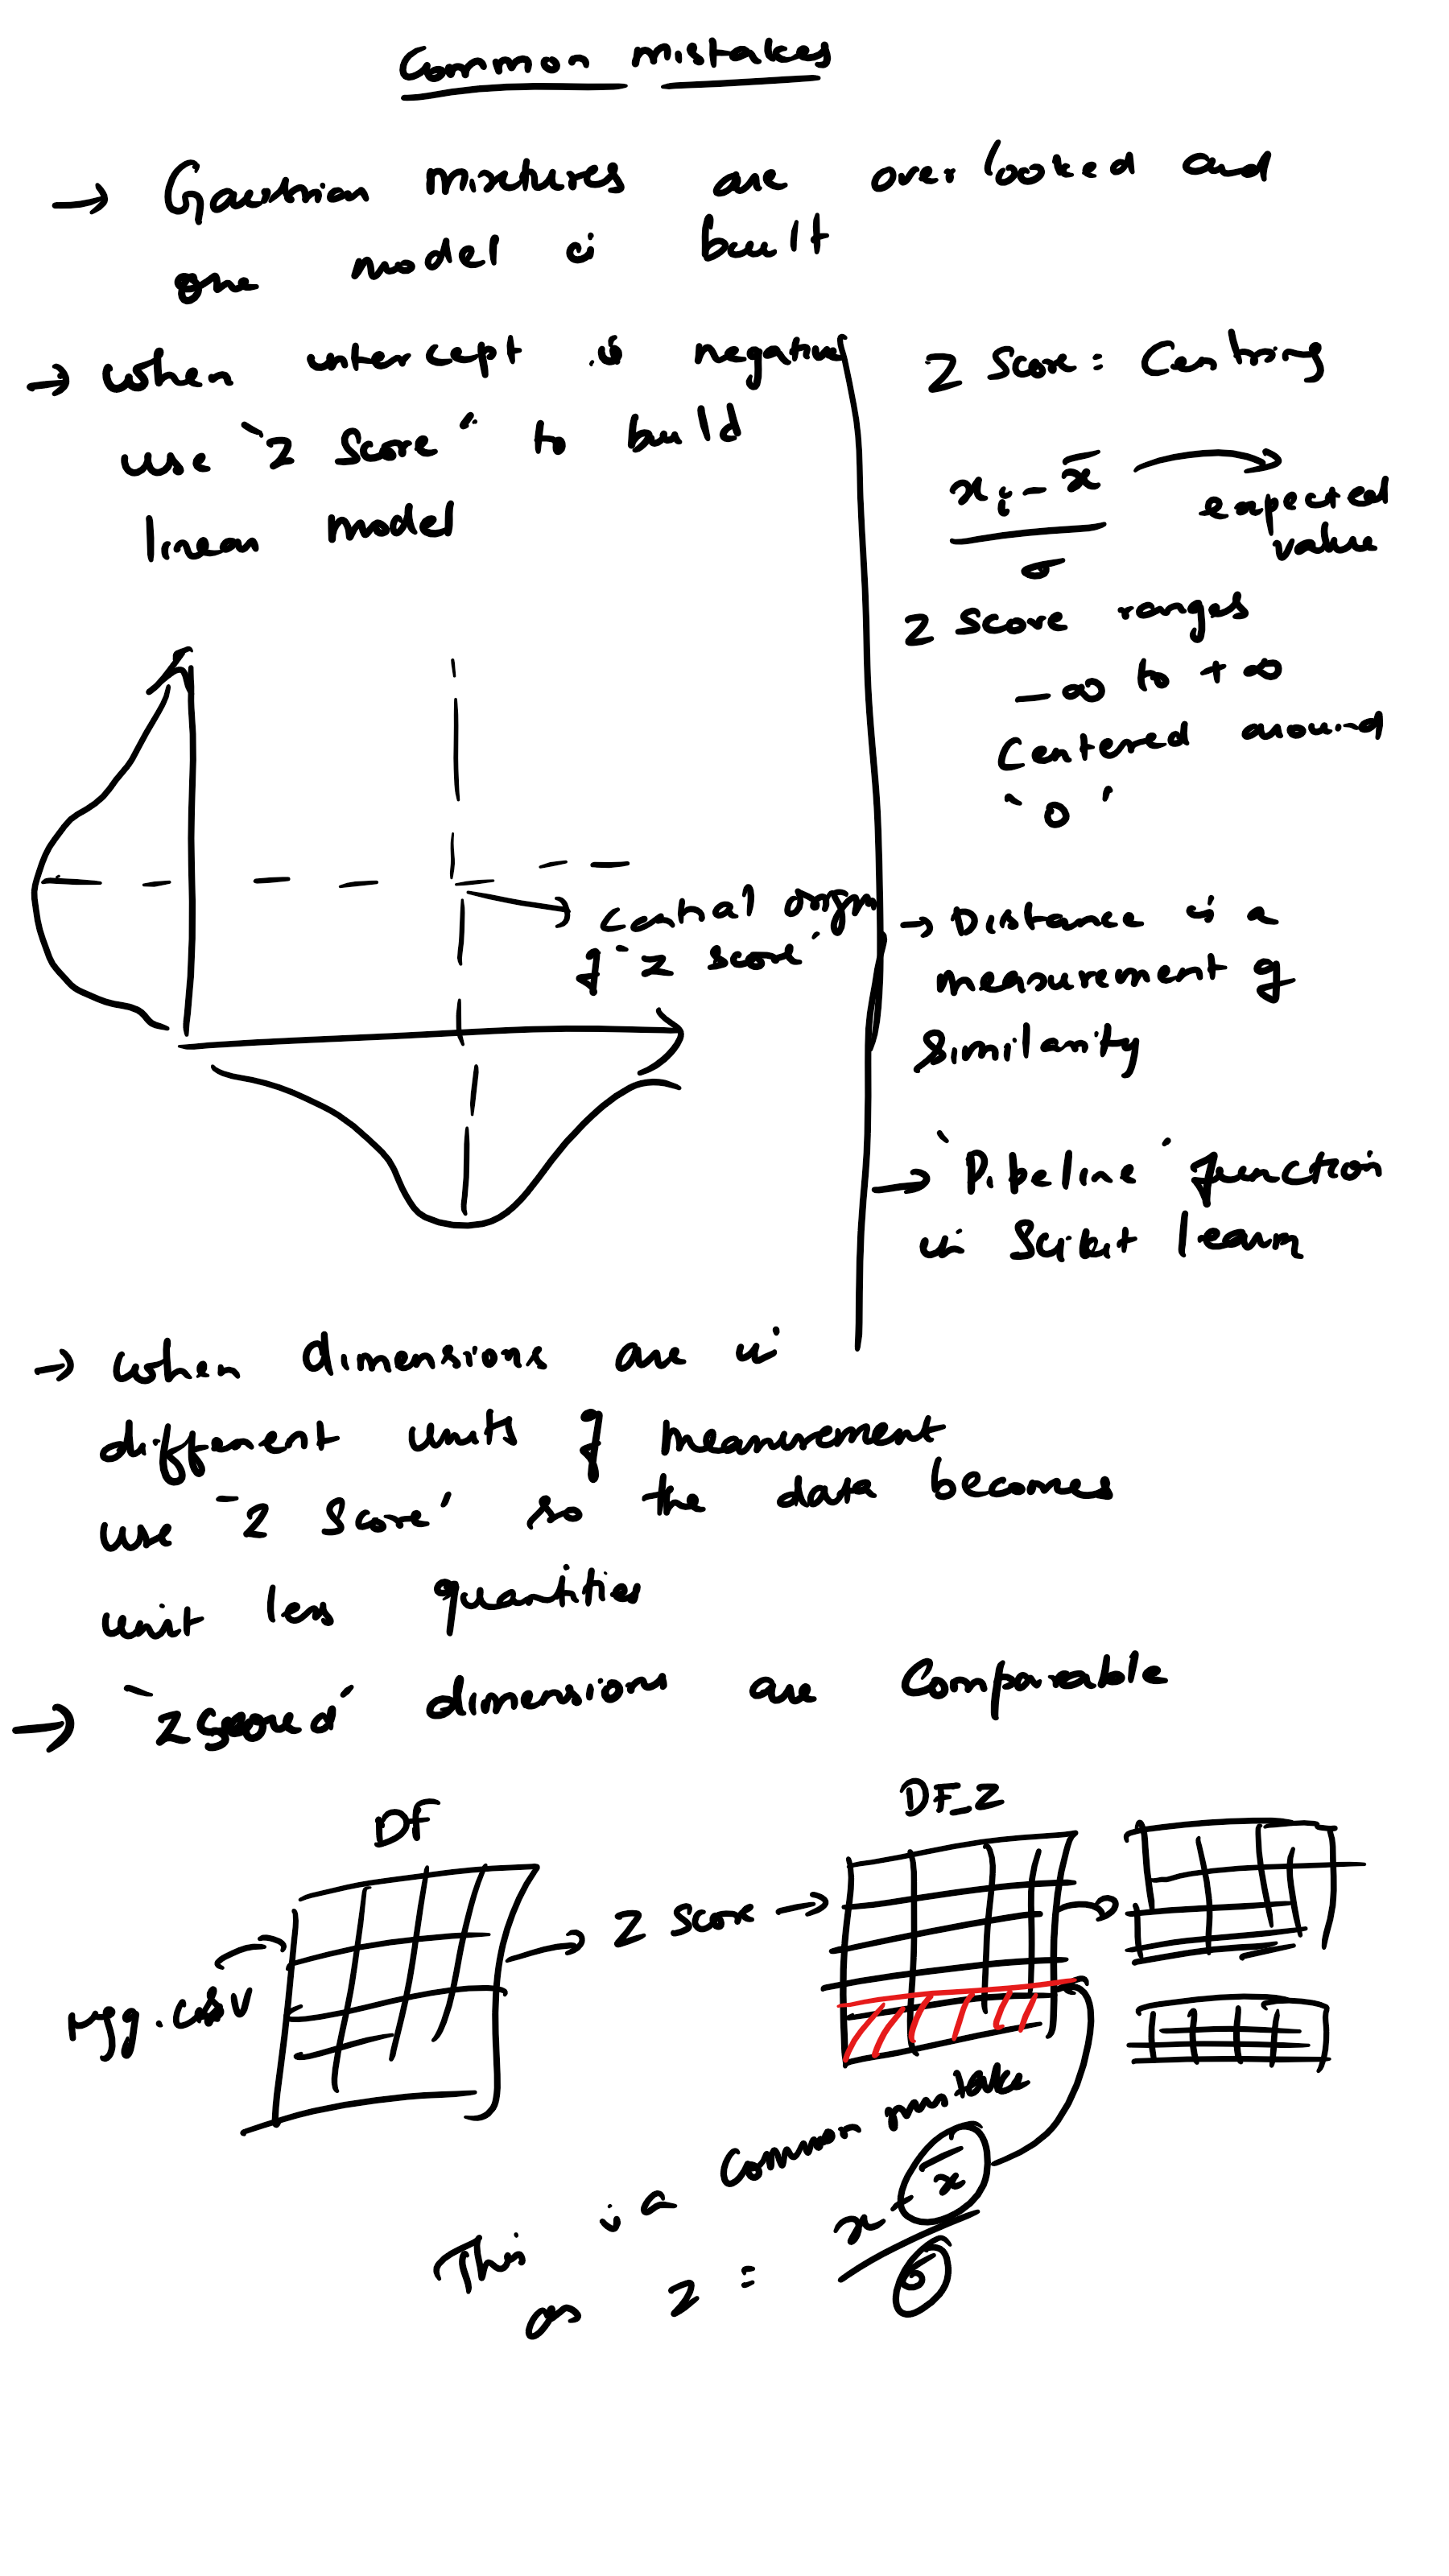 Common mistakes
→ Gaussian mixtures are overlooked and
one model is built
→ when intercept is negative
use "z score" to build
linear model
central origin
of "z score"
z score = Centring
xᵢ - x̄ → expected
value
σ
z score ranges
-∞ to +∞
Centered around
'0'
→ Distance is a
measurement of
similarity
→ 'Pipeline' function
in Scikit learn
→ when dimensions are in
different units of measurement
use "z score" so the data becomes
unit less quantities
→ "z scored" dimensions are Comparable
DF
mpg.csv
→ z score →
DF_z
This is a common mistake
as z = x - x̄
σ